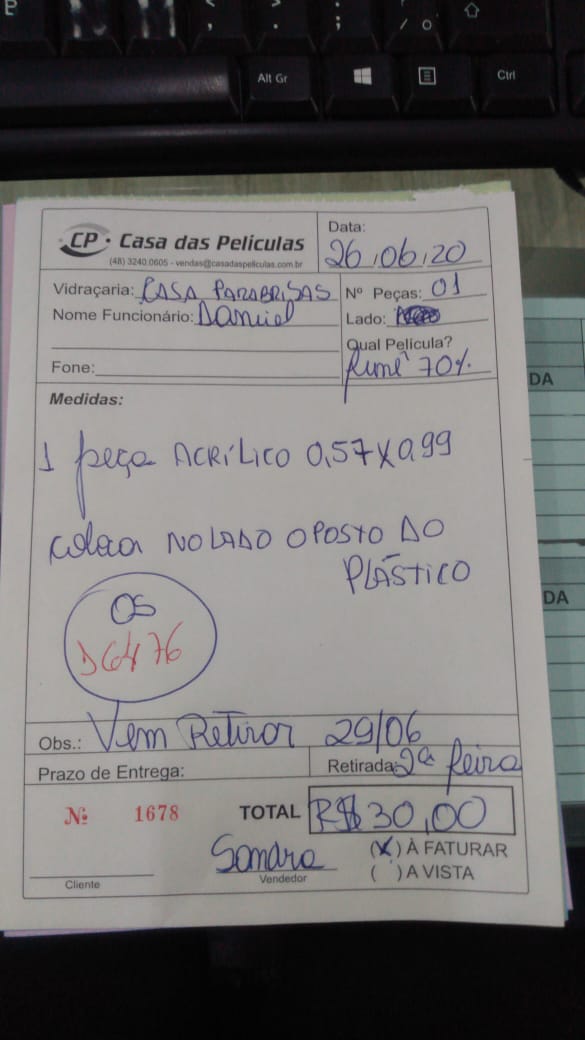 P
Alt Gr
Ctrl
CP Casa das Películas
(48) 3240.0605 - vendas@casadaspeliculas.com.br
Data:
26/06/20
Vidraçaria: CASA PARABRISAS
Nº Peças: 01
Nome Funcionário: DANIEL
Lado:
Qual Película?
Fumê 70%
Fone:
Medidas:
1 peça ACRÍLICO 0,57 X 0,99
colocar NO LADO OPOSTO DO
PLÁSTICO
OS
Obs.: Vem Retirar 29/06
Prazo de Entrega:
Retirada: 2ª feira
Nº 1678
TOTAL R$ 30,00
Sandra
(X) À FATURAR
( ) A VISTA
Cliente
Vendedor
DA
DA